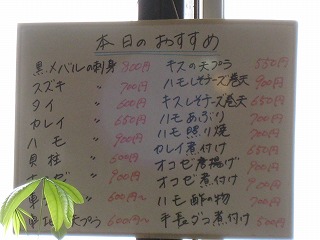 本日のおすすめ
黒メバルの刺身 800円
スズキ 〃 700円
タイ 〃 600円
カレイ 〃 650円
ハモ 〃 900円
貝柱 〃 600円
600円〜
天プラ 600円〜
キスの天プラ 550円
ハモしそチーズ巻天 900円
キスしそチーズ巻天 650円
ハモあぶり 700円
ハモ照り焼 700円
カレイ煮付け 650円
オコゼ唐揚げ 900円
オコゼ煮付け 900円
ハモ酢の物 700円
手長ダコ煮付け 500円